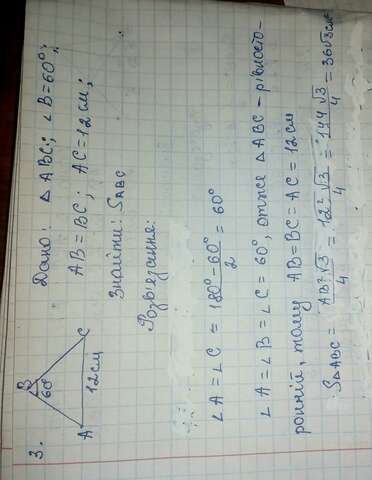 3.
B
60°
A
C
12 см
Дано: △ ABC; ∠ B = 60°;
AB = BC; AC = 12 см;
Знайти: S ABC
Розв'язання:
∠A = ∠C = 180° − 60° / 2 = 60°
∠A = ∠B = ∠C = 60°, отже △ ABC – рівносто-
ронній, тому AB = BC = AC = 12 см
S△ABC = AB²√3 / 4 = 12²√3 / 4 = 144√3 / 4 = 36√3 см²